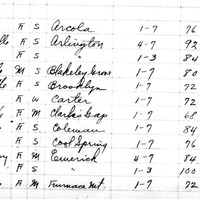 F S Arcola 1-7 76
F S Arlington 4-7 92
F S " 1-3 84
M S Blakeley Grove 1-7 80
F S Brooklyn 1-7 72
F W Carter 1-7 72
F M Clarke's Gap 1-7 68
F S Coleman 1-7 84
F S Cool Spring 1-7 76
F M Emerick 4-7 84
F S " 1-3 100
F M Furnace Mt. 1-7 72